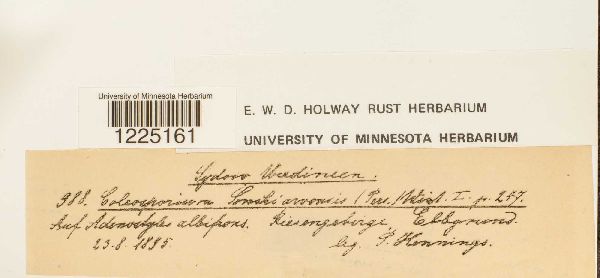 University of Minnesota Herbarium
1225161
E. W. D. HOLWAY RUST HERBARIUM
UNIVERSITY OF MINNESOTA HERBARIUM
Sydow Uredineen.
988. Coleosporium Sonchi arvensis (Pers.) Wint. I. p. 257.
Auf Adenostyles albifrons. Riesengebirge, Elbgrund.
23.8.1895. leg. P. Hennings.